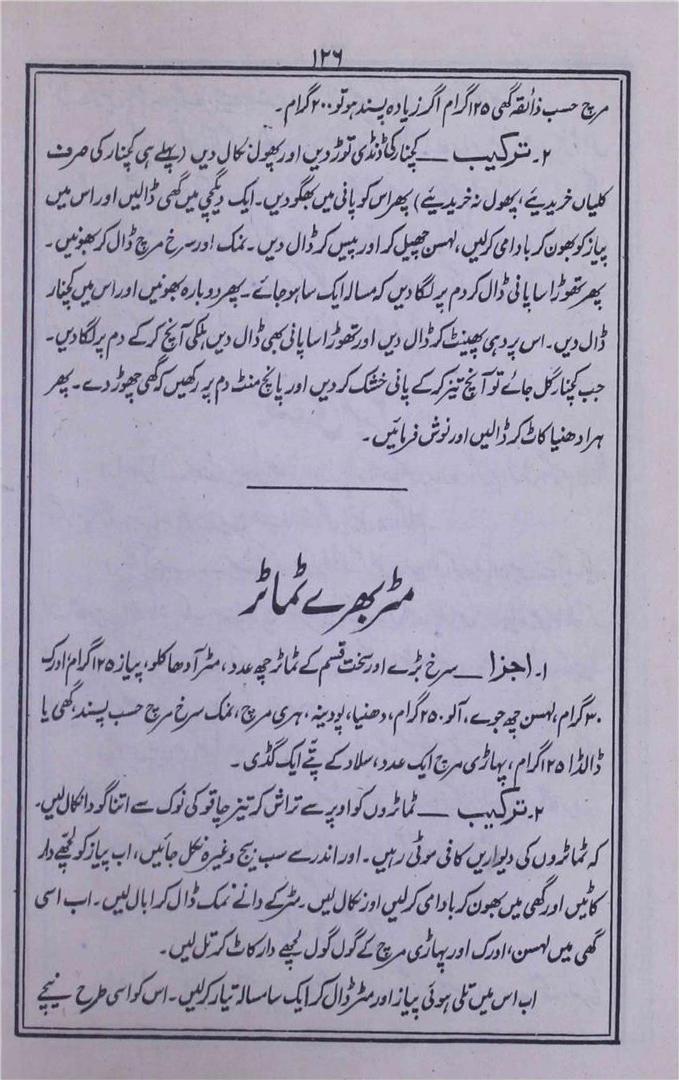 ۱۲۶
مرچ حسب ذائقہ گھی ۱۲۵ گرام اگر زیادہ پسند ہو تو ۲۰۰ گرام۔
۲۔ ترکیب — کچنار کی ڈنڈی توڑ دیں اور پھول نکال دیں (پہلے ہی کچنار کی صرف
کلیاں خریدیئے، پھول نہ خریدیئے) پھر اس کو پانی میں بھگو دیں۔ ایک دیگچی میں گھی ڈالیں اور اس میں
پیاز کو بھون کر بادامی کر لیں، لہسن چھیل کر اور پیس کر ڈال دیں۔ نمک اور سرخ مرچ ڈال کر بھونیں۔
پھر تھوڑا سا پانی ڈال کر دم پر لگا دیں کہ مسالہ ایک سا ہو جائے۔ پھر دوبارہ بھونیں اور اس میں کچنار
ڈال دیں۔ اس پر دہی پھینٹ کر ڈال دیں اور تھوڑا سا پانی بھی ڈال دیں ہلکی آنچ کر کے دم پر لگا دیں۔
جب کچنار گل جائے تو آنچ تیز کر کے پانی خشک کر دیں اور پانچ منٹ دم پر رکھیں کہ گھی چھوڑ دے۔ پھر
ہرا دھنیا کاٹ کر ڈالیں اور نوش فرمائیں۔
مٹر بھرے ٹماٹر
۱۔ اجزا — سرخ بڑے اور سخت قسم کے ٹماٹر چھ عدد، مٹر آدھا کلو، پیاز ۱۲۵ گرام، ادرک
۳۰ گرام، لہسن چھ جوے، آلو ۲۵۰ گرام، دھنیا، پودینہ، ہری مرچ، نمک سرخ مرچ حسب پسند، گھی یا
ڈالڈا ۱۲۵ گرام، پہاڑی مرچ ایک عدد، سلاد کے پتّے ایک گڈی۔
۲۔ ترکیب — ٹماٹروں کو اوپر سے تراش کر تیز چاقو کی نوک سے اتنا گودا نکال لیں۔
کہ ٹماٹروں کی دیواریں کافی موٹی رہیں۔ اور اندر سے سب بیج وغیرہ نکل جائیں، اب پیاز کو لچھے دار
کاٹیں اور گھی میں بھون کر بادامی کر لیں اور نکال لیں۔ مٹر کے دانے نمک ڈال کر ابال لیں۔ اب اسی
گھی میں لہسن، ادرک اور پہاڑی مرچ کے گول گول لچھے دار کاٹ کر تل لیں۔
اب اس میں تلی ہوئی پیاز اور مٹر ڈال کر ایک سا مسالہ تیار کر لیں۔ اس کو اسی طرح نیچے